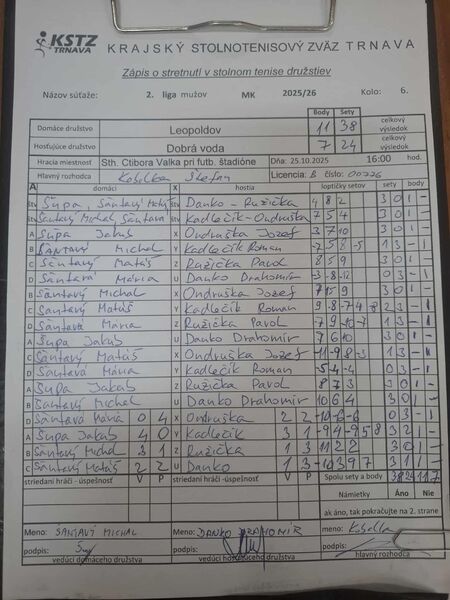 KSTZ
TRNAVA
KRAJSKÝ STOLNOTENISOVÝ ZVÄZ TRNAVA
Zápis o stretnutí v stolnom tenise družstiev
Názov súťaže: 2. liga mužov MK 2025/26 Kolo: 6.
Body Sety
Domáce družstvo Leopoldov 11 38 celkový výsledok
Hosťujúce družstvo Dobrá voda 7 24 celkový výsledok
Hracia miestnosť Sth. Ctibora Valka pri futb. štadióne Dňa: 25.10.2025 16:00 hod.
Hlavný rozhodca Licencia: B číslo:
domáci hostia loptičky setov sety body
Štv Šupa, Šántavý Matúš Štv Danko - Ružička 4 8 2 3 0 1 -
Štv Šántavý Michal, Šántavá Štv Kadlečík - Ondruška 7 5 4 3 0 1 -
A Šupa Jakub X Ondruška Jozef 3 7 10 3 0 1 -
B Šántavý Michal Y Kadlečík Roman -7 5 8 -5 1 3 - 1
C Šántavý Matúš Z Ružička Pavol 8 5 9 3 0 1 -
D Šántavá Mária U Danko Drahomír -3 -8 -12 0 3 - 1
B Šántavý Michal X Ondruška Jozef 7 15 9 3 0 1 -
C Šántavý Matúš Y Kadlečík Roman 2 3 - 1
D Šántavá Mária Z Ružička Pavol -7 9 -10 -7 1 3 - 1
A Šupa Jakub U Danko Drahomír 7 6 10 3 0 1 -
C Šántavý Matúš X Ondruška Jozef -11 -9 8 -3 1 3 - 1
D Šántavá Mária Y Kadlečík Roman -5 -4 -4 0 3 - 1
A Šupa Jakub Z Ružička Pavol 8 7 3 3 0 1 -
B Šántavý Michal U Danko Drahomír 10 6 4 3 0 1 -
D Šántavá Mária 0 4 X Ondruška 2 2 -10 -6 -6 0 3 - 1
A Šupa Jakub 4 0 Y Kadlečík 3 1 -9 4 -9 5 8 3 2 1 -
B Šántavý Michal 3 1 Z Ružička 1 3 3 0 1 -
C Šántavý Matúš 2 2 U Danko 1 3 -10 3 9 7 3 1 1 -
striedaní hráči - úspešnosť V P striedaní hráči - úspešnosť V P Spolu sety a body 38 24 11 7
Námietky Áno Nie
ak áno, tak pokračujte na 2. strane
Meno: SANTAVÝ MICHAL Meno: DANKO DRAHOMÍR meno:
podpis: podpis: podpis:
vedúci domáceho družstva vedúci hosťujúceho družstva hlavný rozhodca